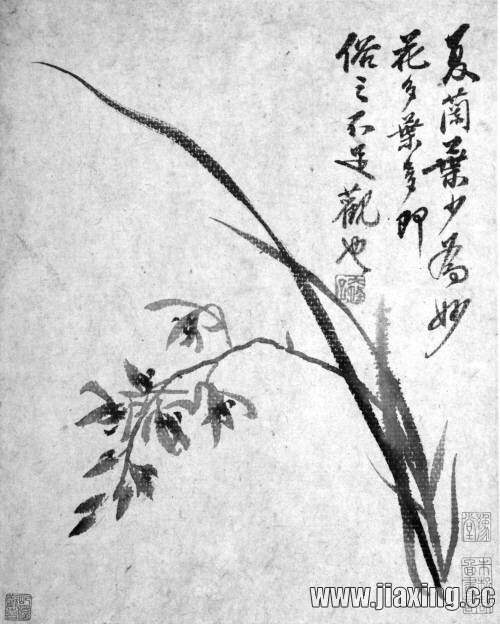 夏蘭葉少為妙
花多葉多即
俗之不足觀也
www.jiaxing.cc